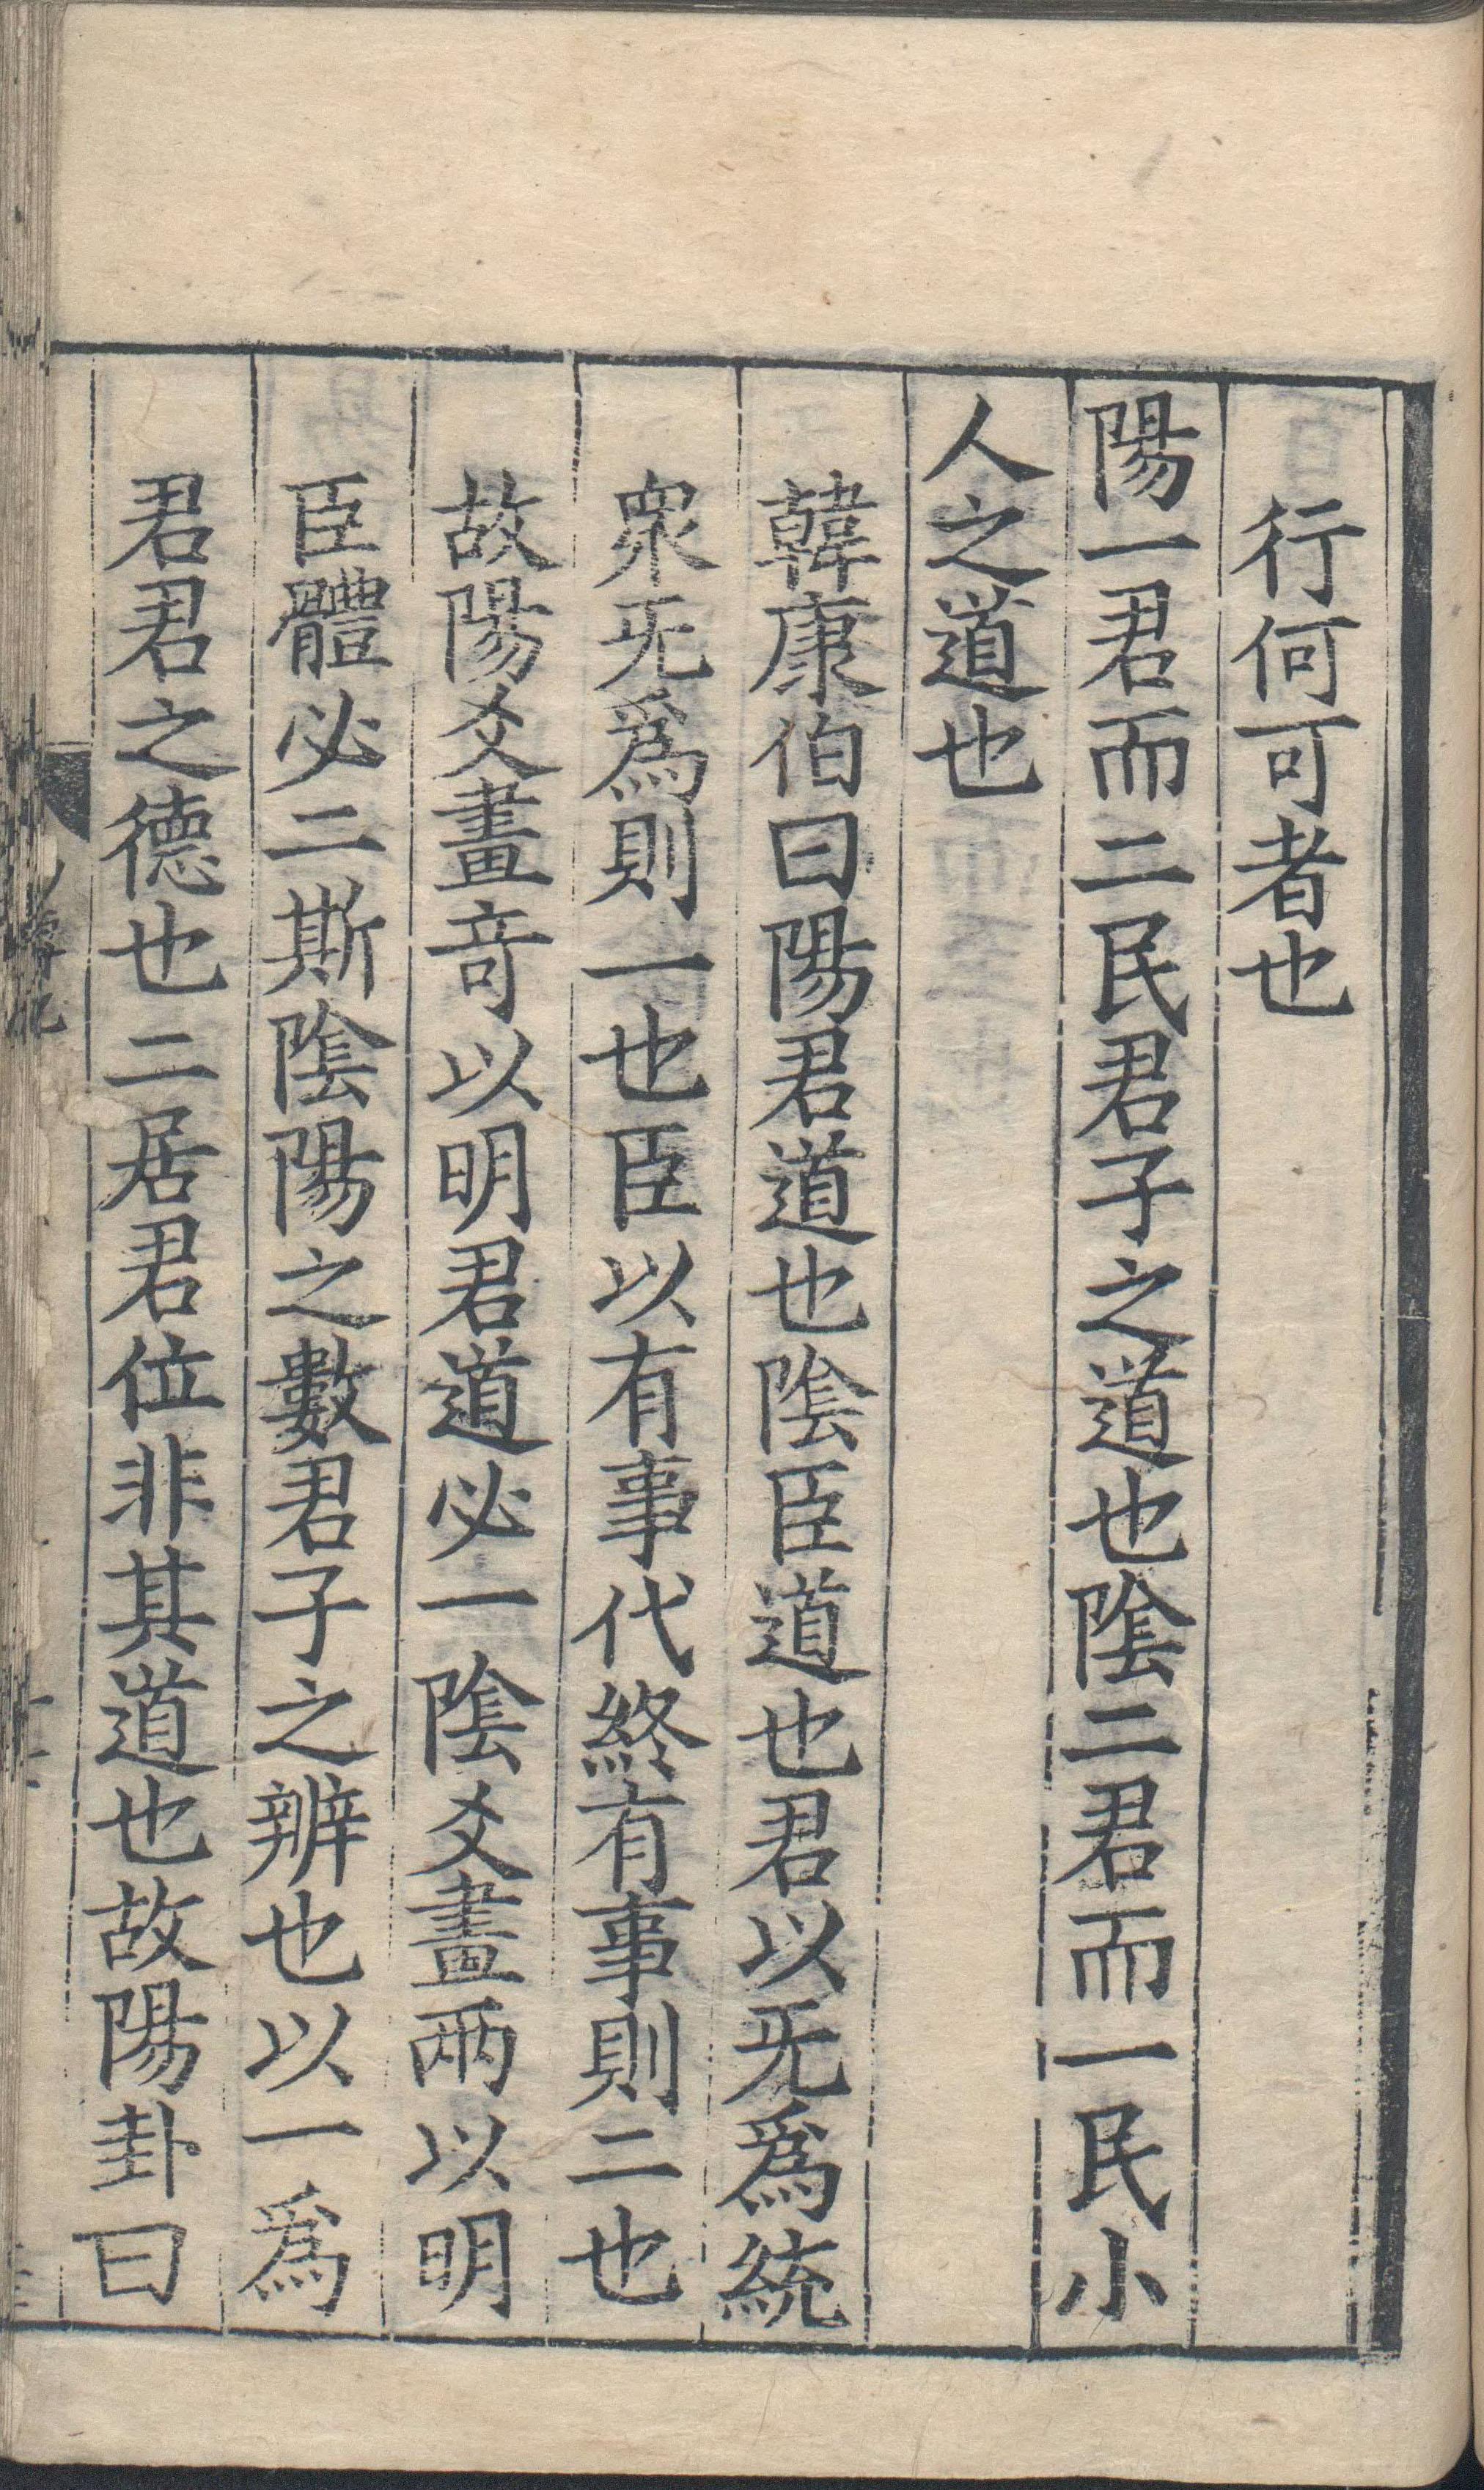 行何可者也
陽一君而二民君子之道也陰二君而一民小
人之道也
韓康伯曰陽君道也陰臣道也君以无爲統
衆无爲則一也臣以有事代終有事則二也
故陽爻畫奇以明君道必一陰爻畫兩以明
臣體必二斯陰陽之數君子之辨也以一爲
君君之德也二居君位非其道也故陽卦曰